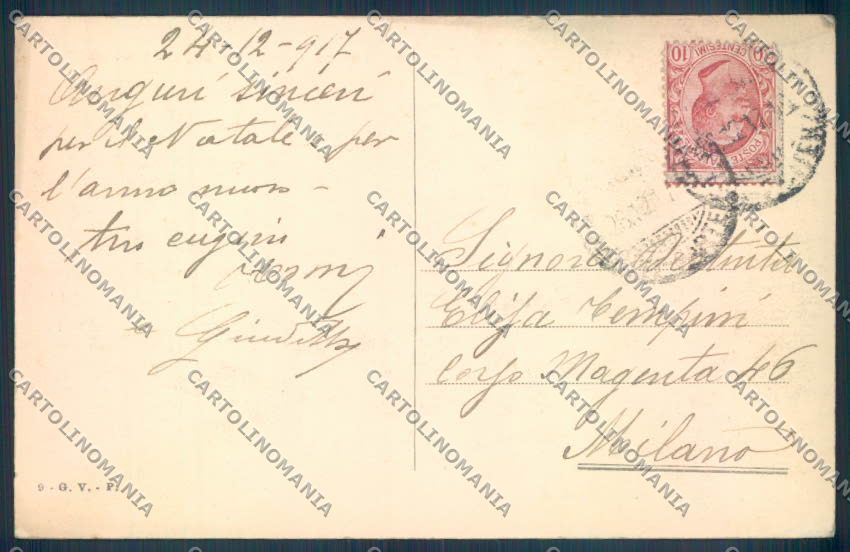 24-12-917
Auguri sinceri
per il Natale e per
l'anno nuovo -
cugini
Giuditta
9 - G. V. - P.
10 CENTESIMI 10
POSTE
Signora
Elisa Tempini
Corso Magenta 46
Milano
CARTOLINOMANIA